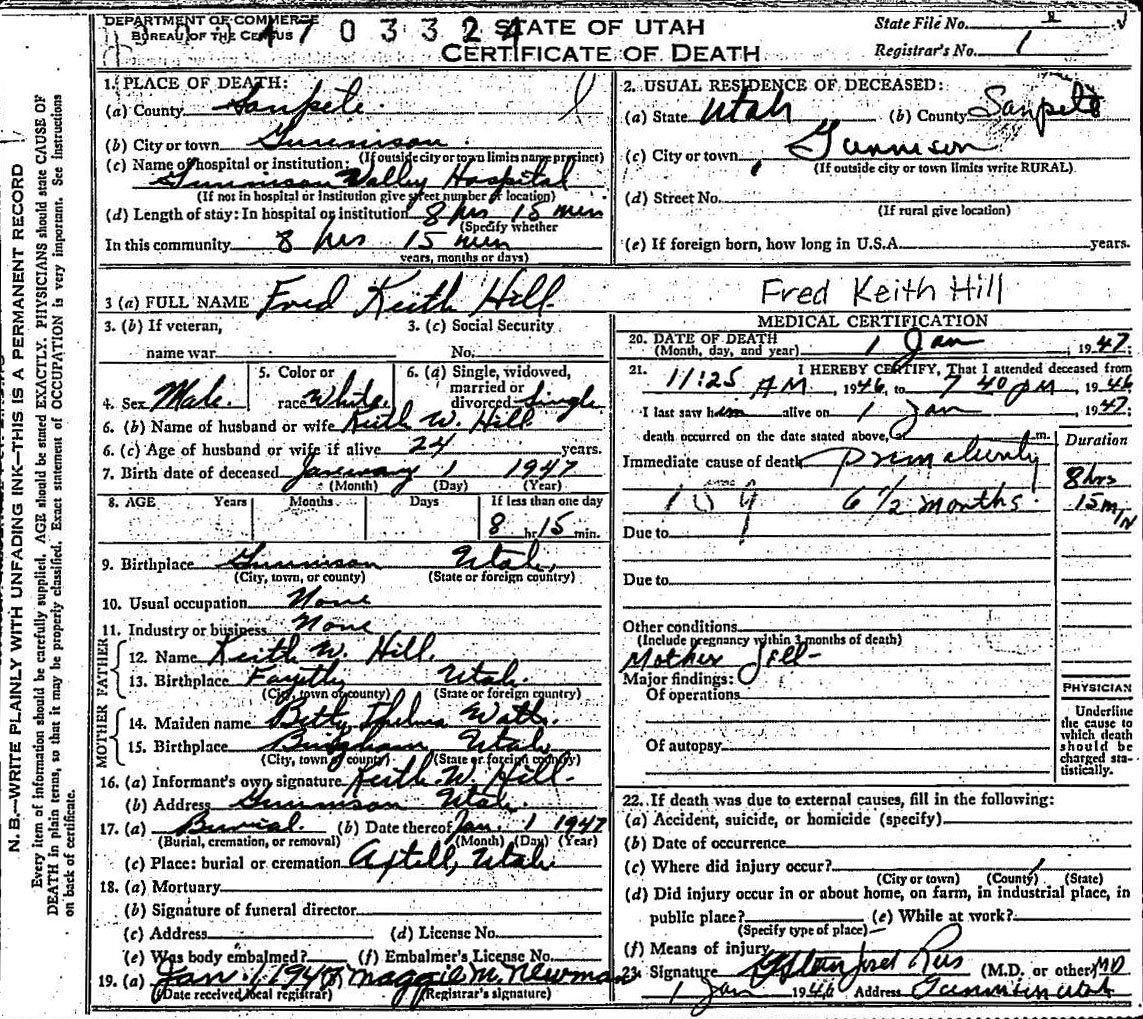 N.B.—WRITE PLAINLY WITH UNFADING INK—THIS IS A PERMANENT RECORD
Every item of information should be carefully supplied. AGE should be stated EXACTLY. PHYSICIANS should state CAUSE OF
DEATH in plain terms, so that it may be properly classified. Exact statement of OCCUPATION is very important. See instructions
on back of certificate.
DEPARTMENT OF COMMERCE
BUREAU OF THE CENSUS
1703324
STATE OF UTAH
CERTIFICATE OF DEATH
State File No.
Registrar's No. 1
1. PLACE OF DEATH:
(a) County Sanpete
(b) City or town Gunnison
(If outside city or town limits name precinct)
(c) Name of hospital or institution:
Gunnison Valley Hospital
(If not in hospital or institution give street number or location)
(d) Length of stay: In hospital or institution 8 hrs 15 min
(Specify whether
In this community 8 hrs 15 min
years, months or days)
2. USUAL RESIDENCE OF DECEASED:
(a) State Utah (b) County Sanpete
(c) City or town Gunnison
(If outside city or town limits write RURAL)
(d) Street No.
(If rural give location)
(e) If foreign born, how long in U.S.A. years.
3 (a) FULL NAME Fred Keith Hill
Fred Keith Hill
3. (b) If veteran,
name war
3. (c) Social Security
No.
4. Sex Male
5. Color or
race White
6. (a) Single, widowed,
married or
divorced Single
6. (b) Name of husband or wife Keith W. Hill
6. (c) Age of husband or wife if alive 24 years.
7. Birth date of deceased January 1 1947
(Month) (Day) (Year)
8. AGE Years Months Days If less than one day
8 hr. 15 min.
9. Birthplace Gunnison Utah
(City, town, or county) (State or foreign country)
10. Usual occupation None
11. Industry or business None
FATHER
12. Name Keith W. Hill
13. Birthplace Utah
(City, town or county) (State or foreign country)
MOTHER
14. Maiden name Betty Thelma Watts
15. Birthplace Bingham Utah
(City, town or county) (State or foreign country)
16. (a) Informant's own signature Keith W. Hill
(b) Address Gunnison Utah
17. (a) Burial (b) Date thereof Jan. 1 1947
(Burial, cremation, or removal) (Month) (Day) (Year)
(c) Place: burial or cremation Axtell, Utah
18. (a) Mortuary
(b) Signature of funeral director
(c) Address (d) License No.
(e) Was body embalmed? (f) Embalmer's License No.
19. (a) Jan. 1. 1947 Maggie M. Newman
(Date received local registrar) (Registrar's signature)
MEDICAL CERTIFICATION
20. DATE OF DEATH
(Month, day, and year) 1 Jan, 1947.
21. I HEREBY CERTIFY, That I attended deceased from
11:25 AM 1946, to 7 40 PM, 1946
I last saw him alive on 1 Jan, 1947
death occurred on the date stated above, m.
Duration
Immediate cause of death
6 1/2 months
8 hrs
15 min
Due to
Due to
Other conditions
(Include pregnancy within 3 months of death)
Mother
Major findings:
Of operations
Of autopsy
PHYSICIAN
Underline
the cause to
which death
should be
charged sta-
tistically.
22. If death was due to external causes, fill in the following:
(a) Accident, suicide, or homicide (specify)
(b) Date of occurrence
(c) Where did injury occur?
(City or town) (County) (State)
(d) Did injury occur in or about home, on farm, in industrial place, in
public place? (e) While at work?
(Specify type of place)
(f) Means of injury
23. Signature Rees (M.D. or other) MD
1 Jan 1946 Address Gunnison Utah